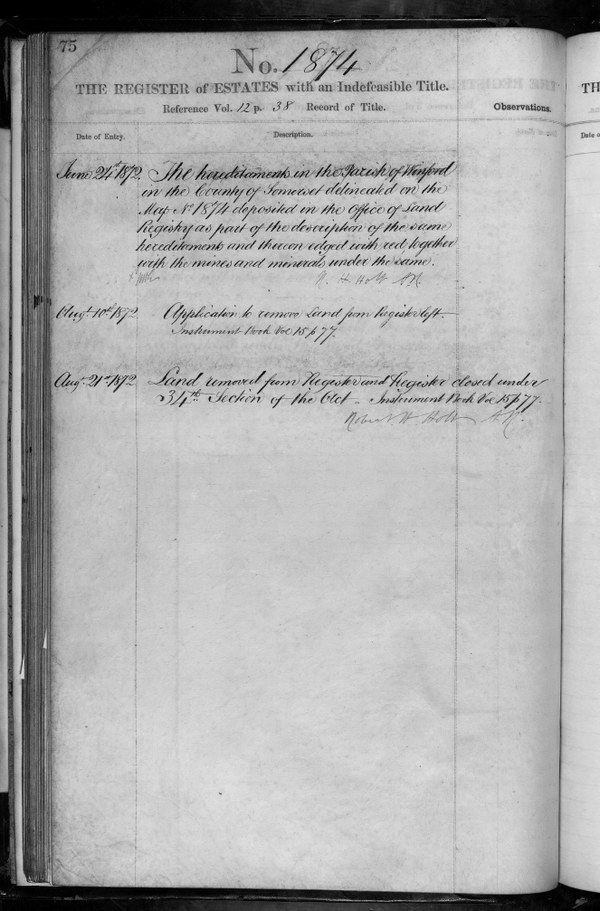 75
No. 1874
THE REGISTER of ESTATES with an Indefeasible Title.
Reference Vol. 12 p. 38 Record of Title.
Observations.
Date of Entry.
Description.
June 24th 1872
The hereditaments in the Parish of Winford
in the County of Somerset delineated on the
Map No 1874 deposited in the Office of Land
Registry as part of the description of the same
hereditaments and thereon edged with red together
with the mines and minerals under the same.
R H Holt AR.
Augt. 10th 1872
Application to remove Land from Register left.
Instrument Book Vol 15 p 77.
Augt. 21st 1872
Land removed from Register and Register closed under
34th Section of the Act - Instrument Book Vol 15 p 77.
Robert H Holt AR.
TH
Date o